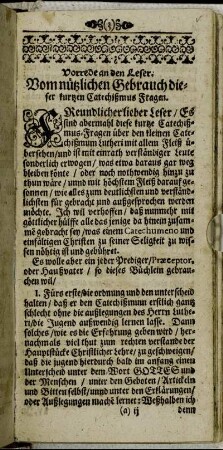 Vorrede an den Leser.
Vom nützlichen Gebrauch die-
ser kurtzen Catechißmus Fragen.
FReundlicher lieber Leser / Es
sind abermahl diese kurtze Catechiß-
mus-Fragen über den kleinen Cate-
chißmum Lutheri mit allem Fleiß ü-
bersehen / und ist mit einrath verständiger Leute
sonderlich erwogen / was etwa daraus gar weg
bleiben könte / oder noch nothwendig hinzu zu
thun wäre / und mit höchstem Fleiß darauf ge-
sonnen / wie alles zum deutlichsten und verständ-
lichsten für gebracht und außgesprochen werden
möchte. Ich wil verhoffen / daß nunmehr mit
göttlicher hülffe alle das jenige da hinein zusam-
me gebracht sey / was einem Catechumeno und
einfältigen Christen zu seiner Seligkeit zu wis-
sen nöhtig ist und gebühret.
Es wolle aber ein jeder Prediger / Præceptor,
oder Haußvater / so dieses Büchlein gebrau-
chen wil /
1. Fürs erste / die ordnung und den unterscheid
halten / daß er den Catechißmum erstlich gantz
schlecht ohne die außlegungen des Herrn Luthe-
ri / die Jugend außwendig lernen lasse. Dann
solches / wie es die Erfahrung geben wird / her-
nachmals viel thut zum rechten verstande der
Hauptstücke Christlicher lehre / zu geschweigen /
daß die jugend hierdurch bald im anfang einen
Unterscheid unter dem Wort GOTTES und
der Menschen / unter den Geboten / Artickeln
und Bitten selbst / unnd unter den Erklärungen /
oder Außlegungen macht lernet: Weßhalben ich
(a) ij
denn